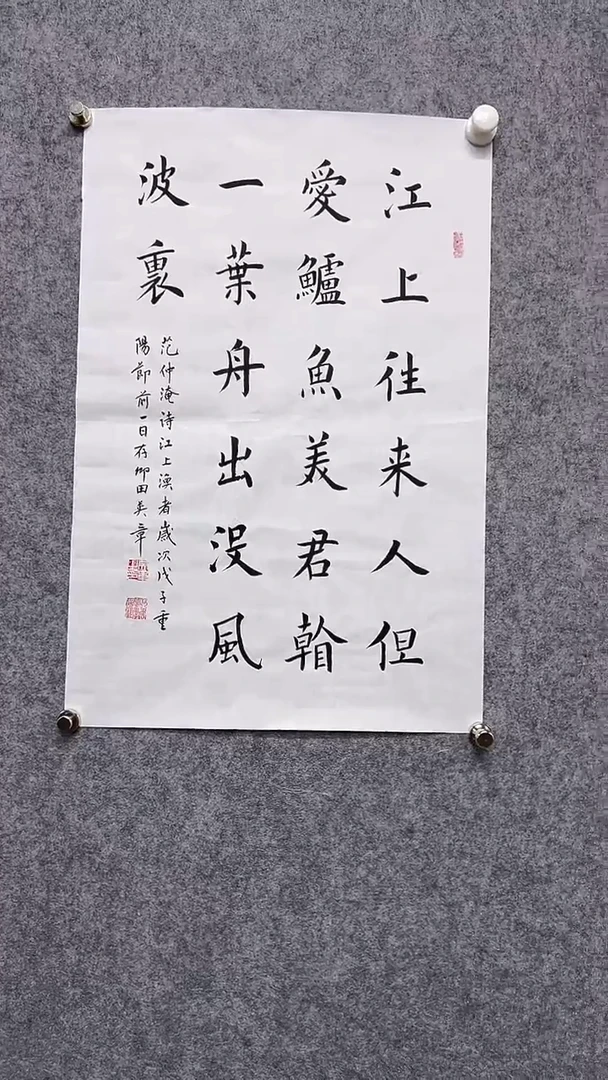 江上往来人但
愛鱸魚美君
一葉舟出没風
波裏
范仲淹诗江上漁者歲次戊子重
陽節前一日存卿田英章